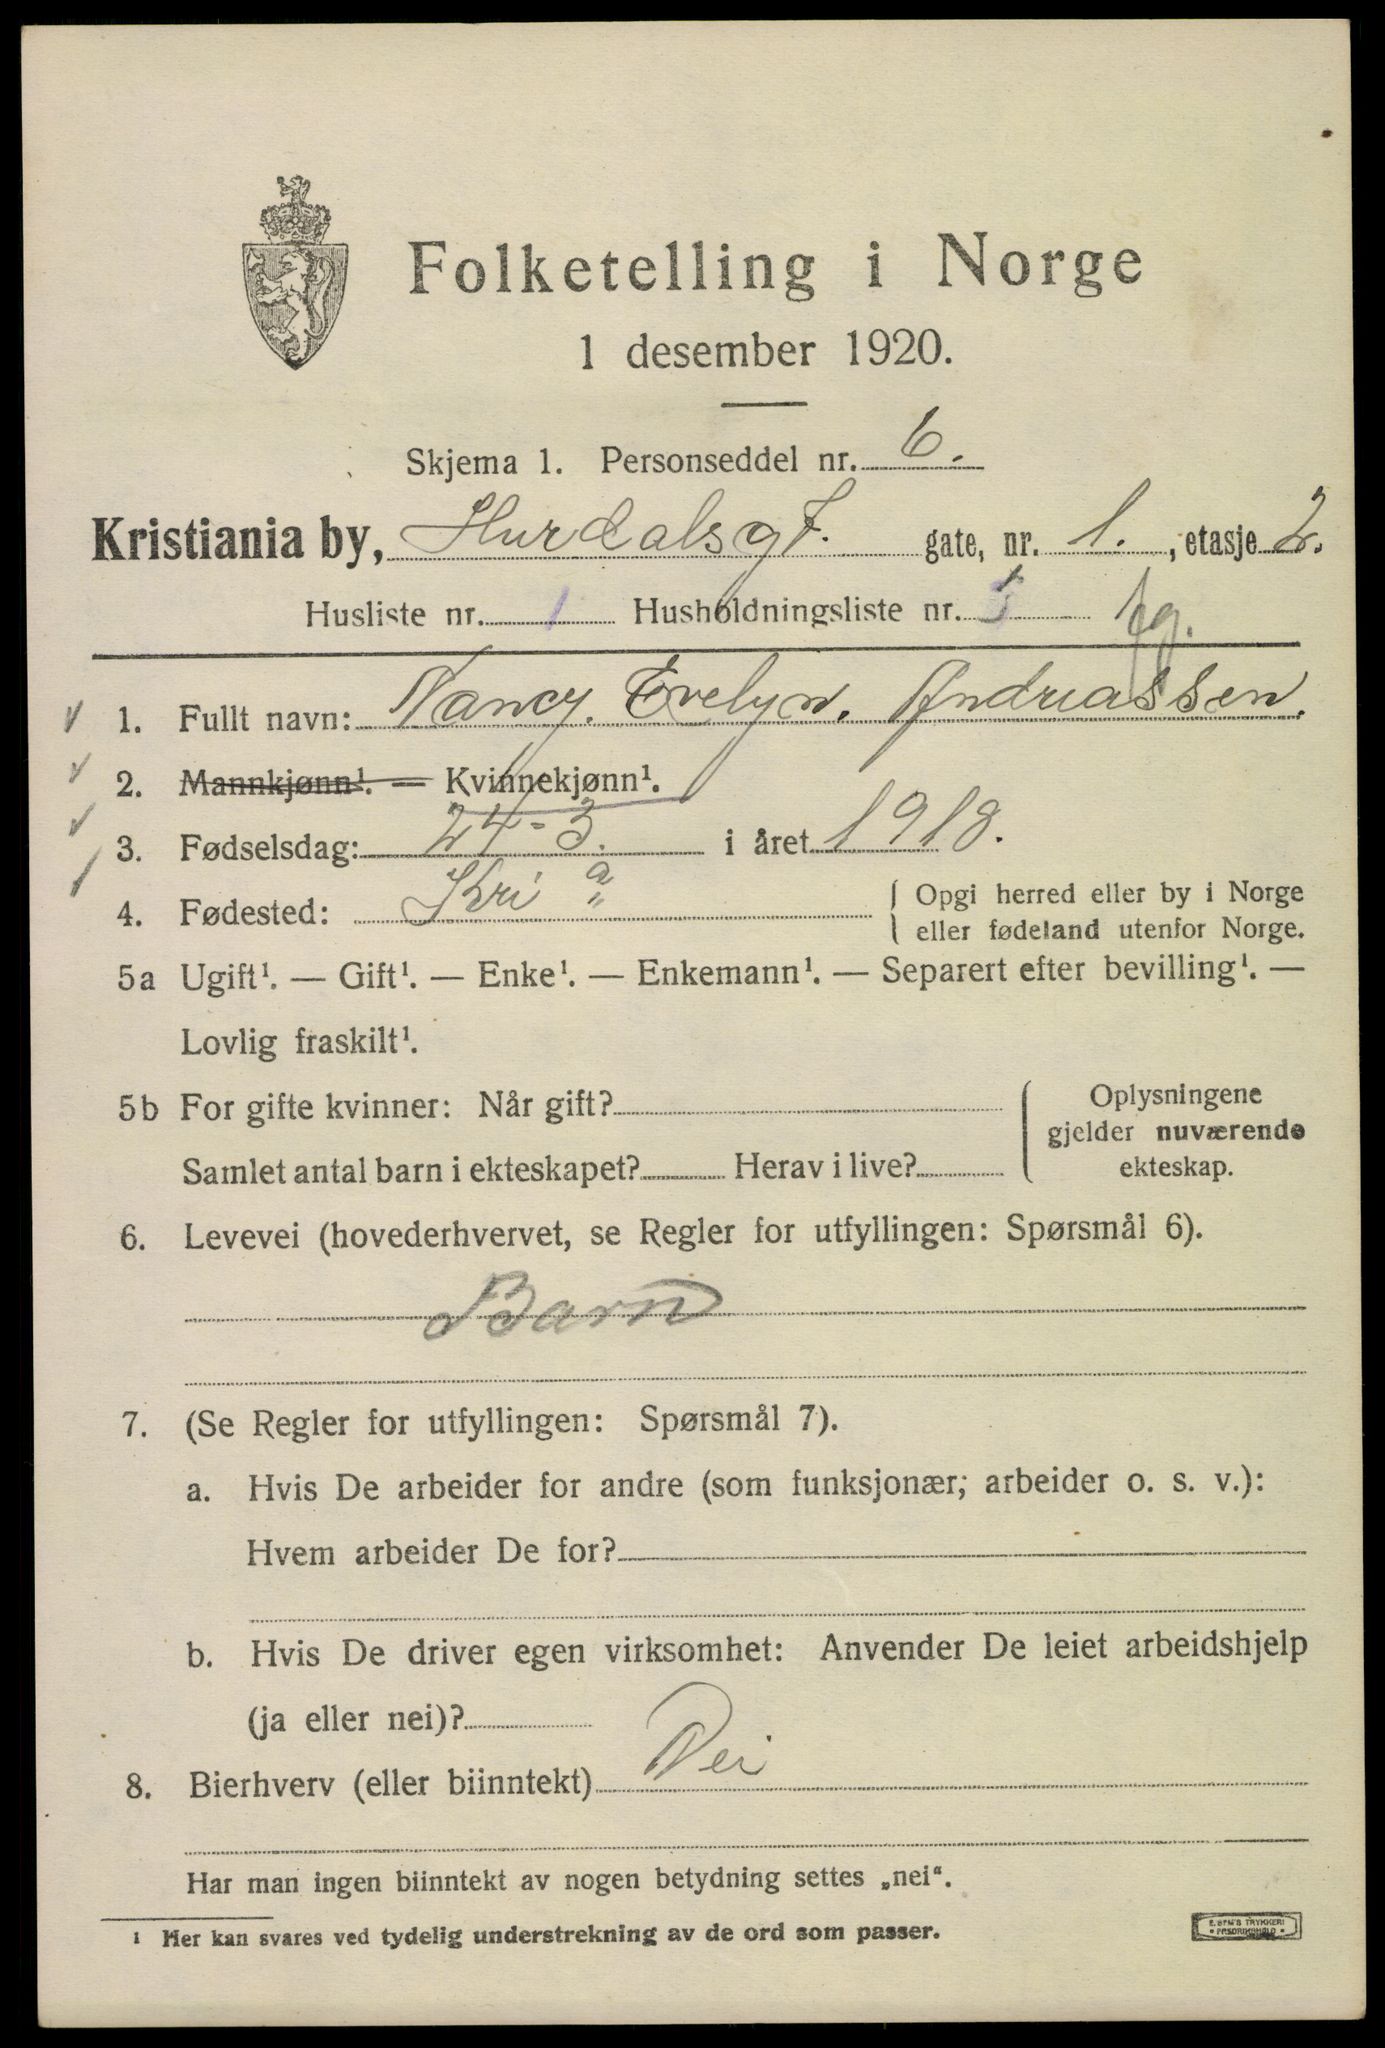 Folketelling i Norge
1 desember 1920.
Skjema 1. Personseddel nr. 6.
Kristiania by, Hurdalsgt. gate, nr. 1., etasje 2.
Husliste nr. 1 Husholdningsliste nr.
1. Fullt navn: Nancy. Evelyn. Andriassen.
2. Mannkjønn¹. — Kvinnekjønn¹.
3. Fødselsdag: 24-3. i året 1918.
4. Fødested: Kri a { Opgi herred eller by i Norge
eller fødeland utenfor Norge.
5a Ugift¹. — Gift¹. — Enke¹. — Enkemann¹. — Separert efter bevilling¹. —
Lovlig fraskilt¹.
5b For gifte kvinner: Når gift? { Oplysningene
gjelder nuværende
Samlet antal barn i ekteskapet? Herav i live? ekteskap.
6. Levevei (hovederhvervet, se Regler for utfyllingen: Spørsmål 6).
Barn
7. (Se Regler for utfyllingen: Spørsmål 7).
a. Hvis De arbeider for andre (som funksjonær; arbeider o. s. v.):
Hvem arbeider De for?
b. Hvis De driver egen virksomhet: Anvender De leiet arbeidshjelp
(ja eller nei)?
8. Bierhverv (eller biinntekt) Nei
Har man ingen biinntekt av nogen betydning settes „nei“.
¹ Her kan svares ved tydelig understrekning av de ord som passer.